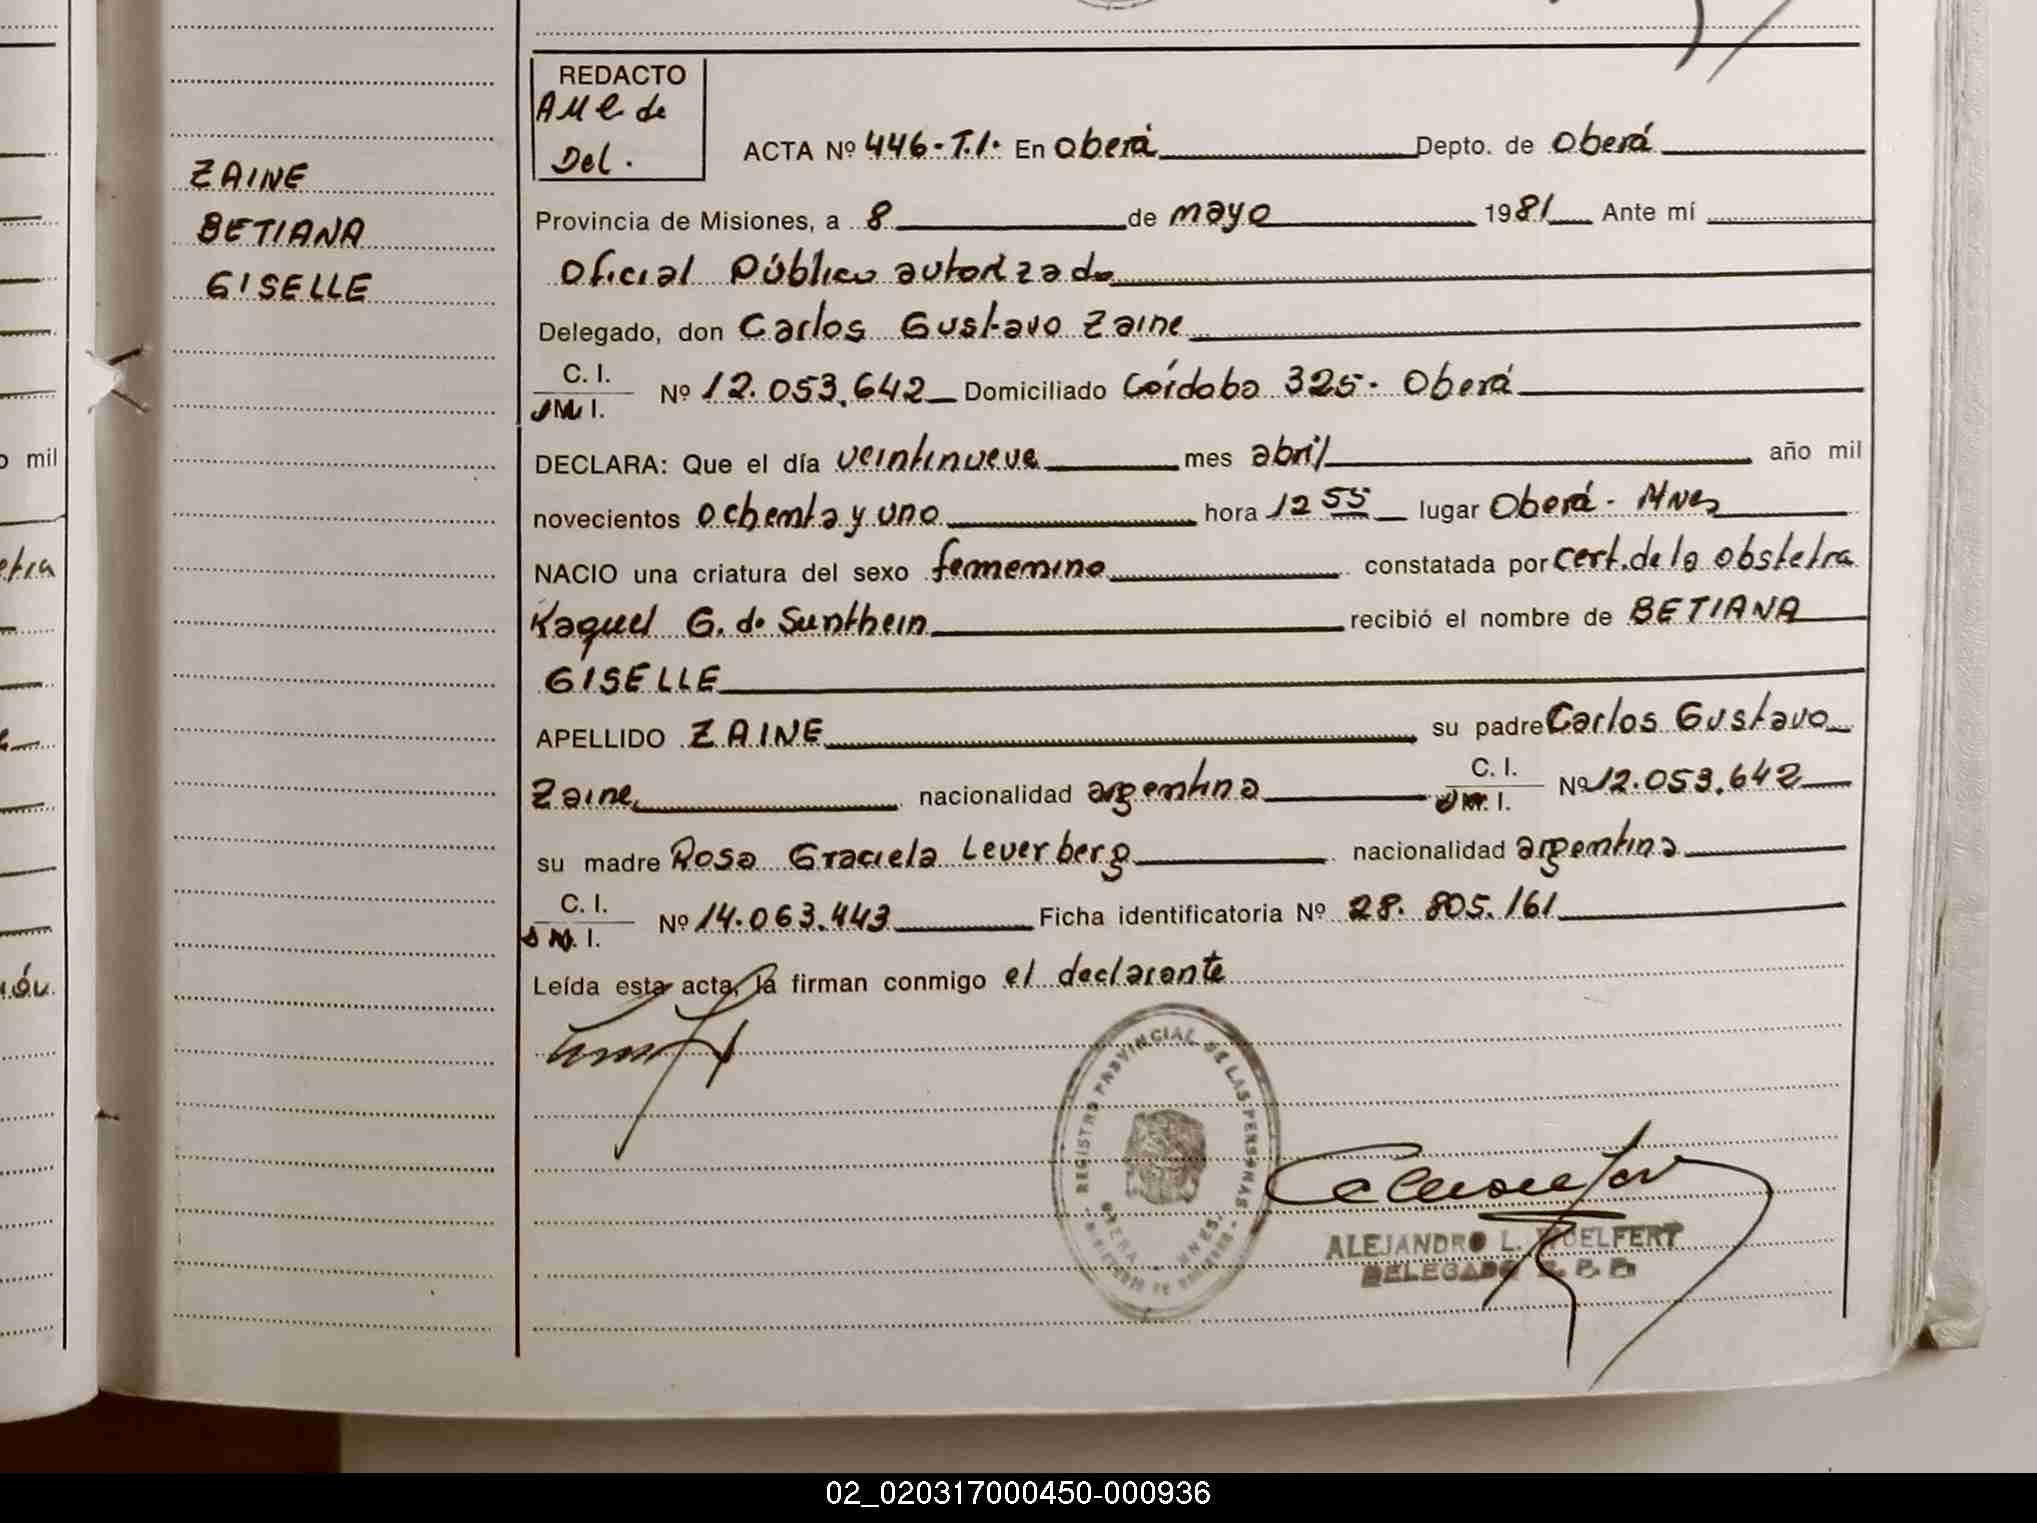 REDACTO
AUL de
Del.
ACTA Nº 446-T.I. En Oberá Depto. de Oberá
ZAINE
BETIANA
GISELLE
Provincia de Misiones, a 8 de mayo 1981 Ante mí
Oficial Público autorizado
Delegado, don Carlos Gustavo Zaine
C. I.
Nº 12.053.642 Domiciliado Córdoba 325- Oberá
o mil
DECLARA: Que el día veintinueve mes abril año mil
novecientos ochenta y uno hora 12 55 lugar Oberá - Mnes
NACIO una criatura del sexo femenino constatada por cert. de la obstetra
Raquel G. de Sunthein recibió el nombre de BETIANA
GISELLE
APELLIDO ZAINE su padre Carlos Gustavo
Zaine nacionalidad argentina C. I. Nº 12.053.642
su madre Rosa Graciela Leverberg nacionalidad argentina
C. I.
Nº 14.063.443 Ficha identificatoria Nº 28.805.161
Leída esta acta, la firman conmigo el declarante
REGISTRO PROVINCIAL DE LAS PERSONAS
ALEJANDRO L. HUELFERT
DELEGADO
02_020317000450-000936